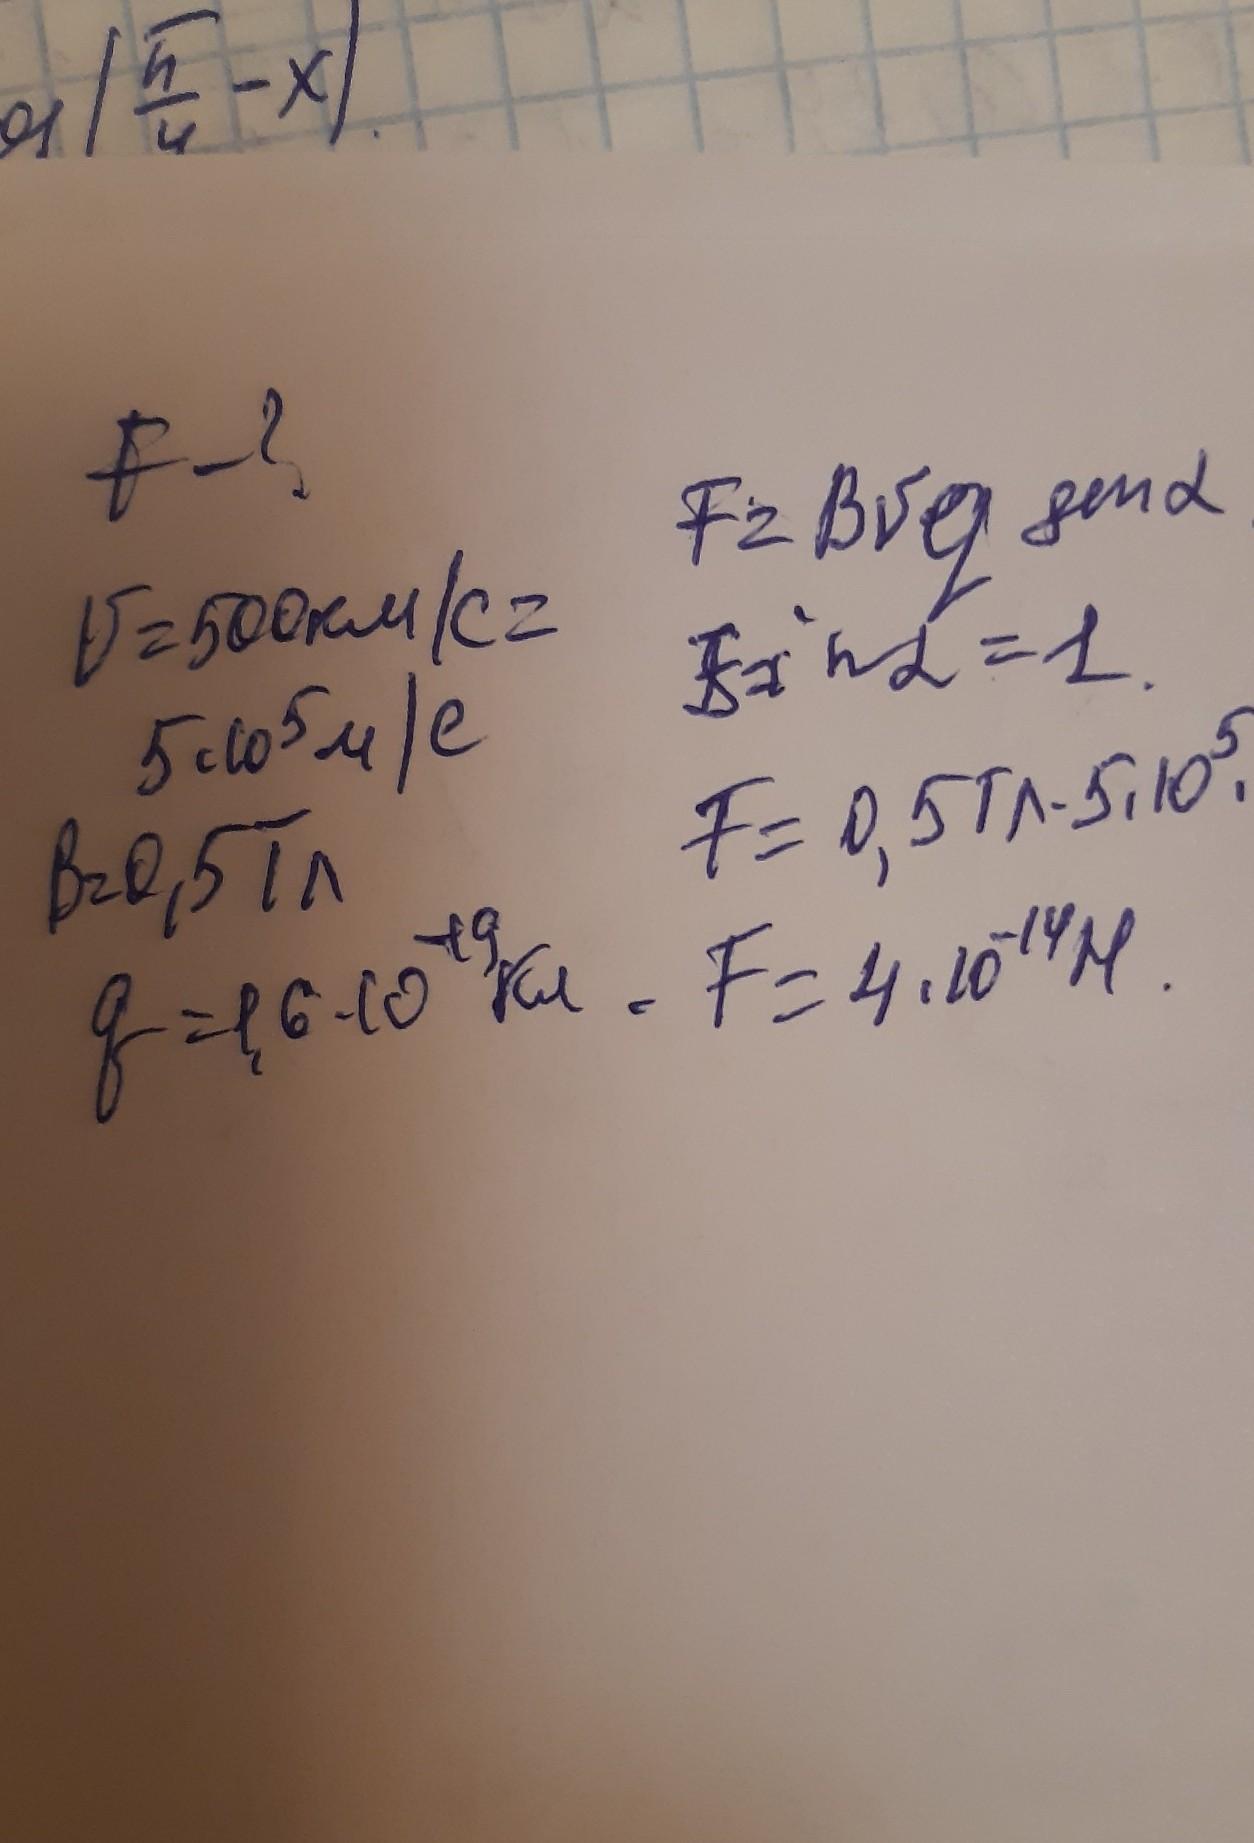 (π/4 - x).
F - ?
V = 500км/с =
5·10⁵м/с
B = 0,5Тл
q = 1,6·10⁻¹⁹Кл.
F = BVq sin α.
sin α = 1.
F = 0,5Тл·5·10⁵·
F = 4·10⁻¹⁴Н.